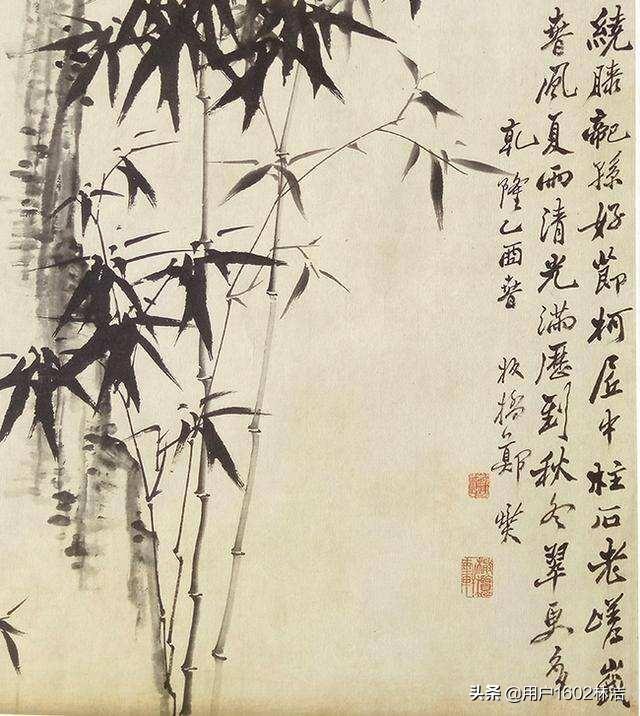 繞膝龍孫好節柯居中柱石老嵯峨
春風夏雨清光滿歷到秋冬翠更多
乾隆乙酉春 板橋鄭燮
头条 @用户1602林洁